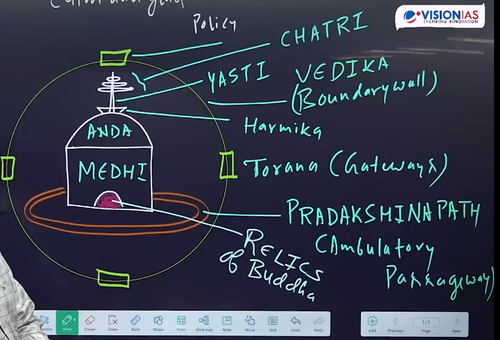 Policy
VISIONIAS
INSPIRING INNOVATION
CHATRI
YASTI
VEDIKA
(Boundarywall)
ANDA
Harmika
MEDHI
Torana (Gateways)
PRADAKSHINAPATH
(Ambulatory
Passageway)
RELICS
of Buddha
Eraser
Clear
Shape
Mind map
Note
Undo
Redo
Add
Previous
1/1
Next